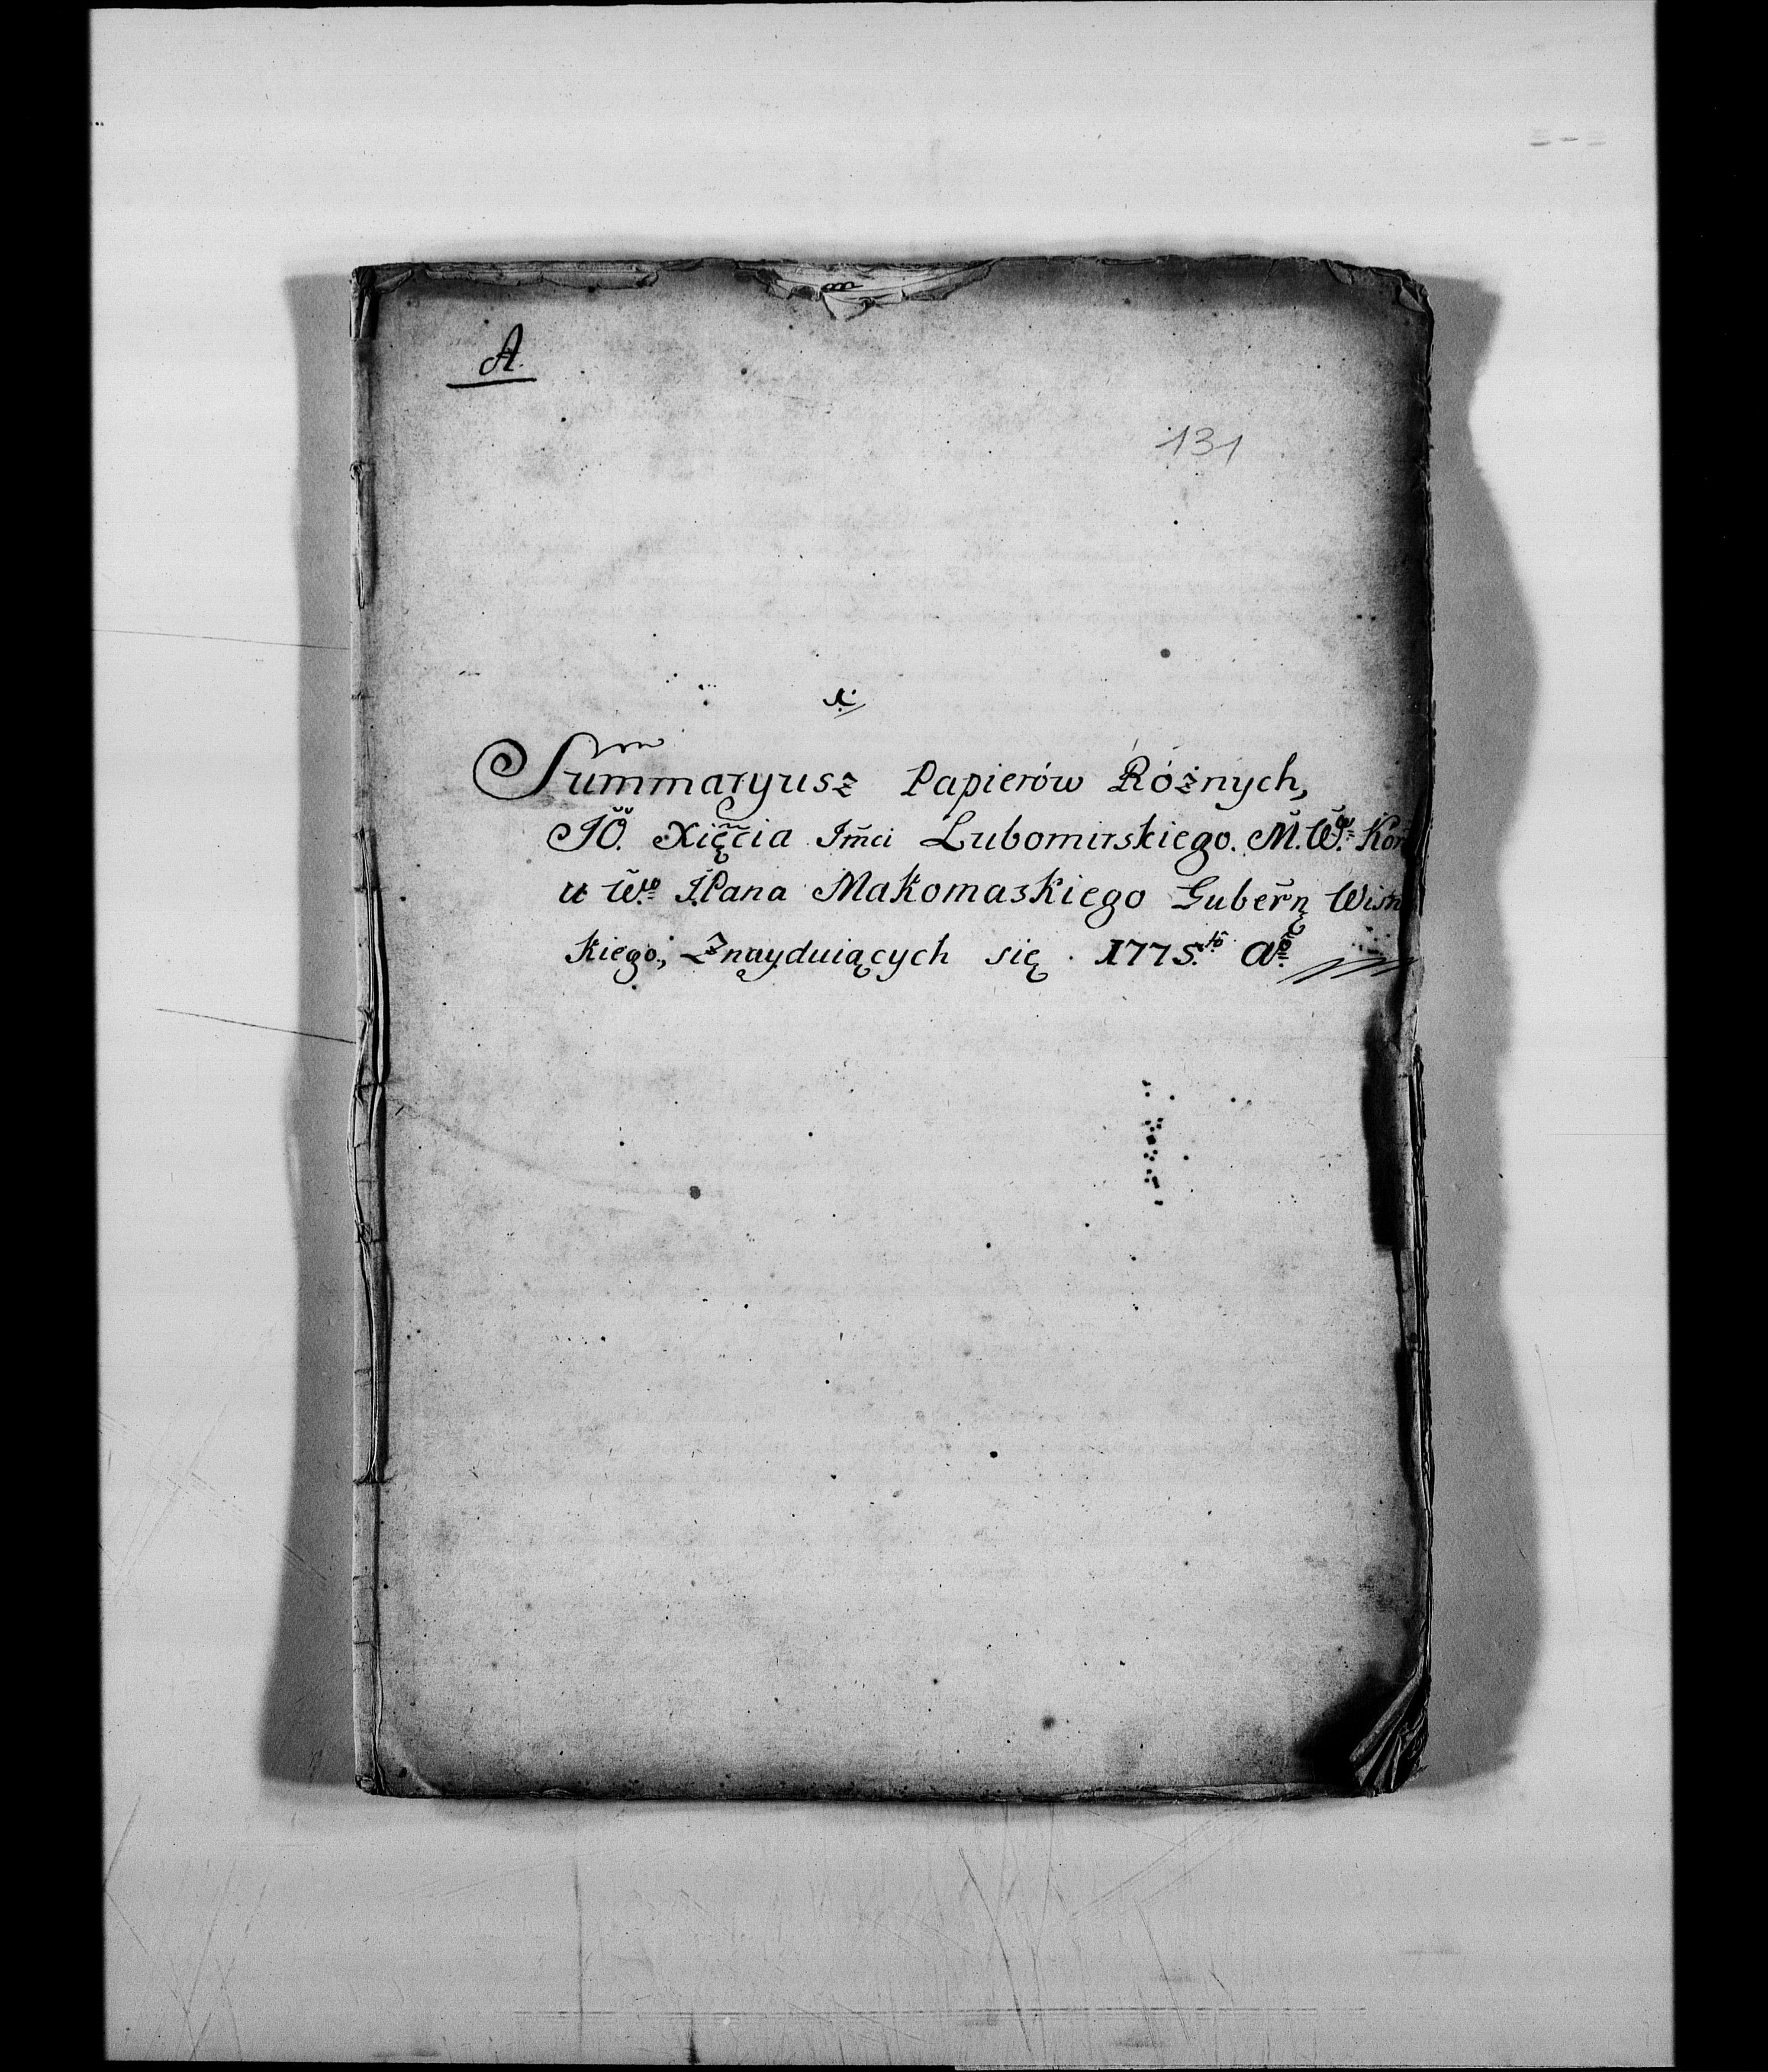 A.
131
Summaryusz Papierów Różnych,
JO. Xięcia Jmci Lubomirskiego. M. Wgo Kor
u Wgo JPana Makomaskiego Gubern Wisn
kiego, Znayduiących się. 1775.to Ao.